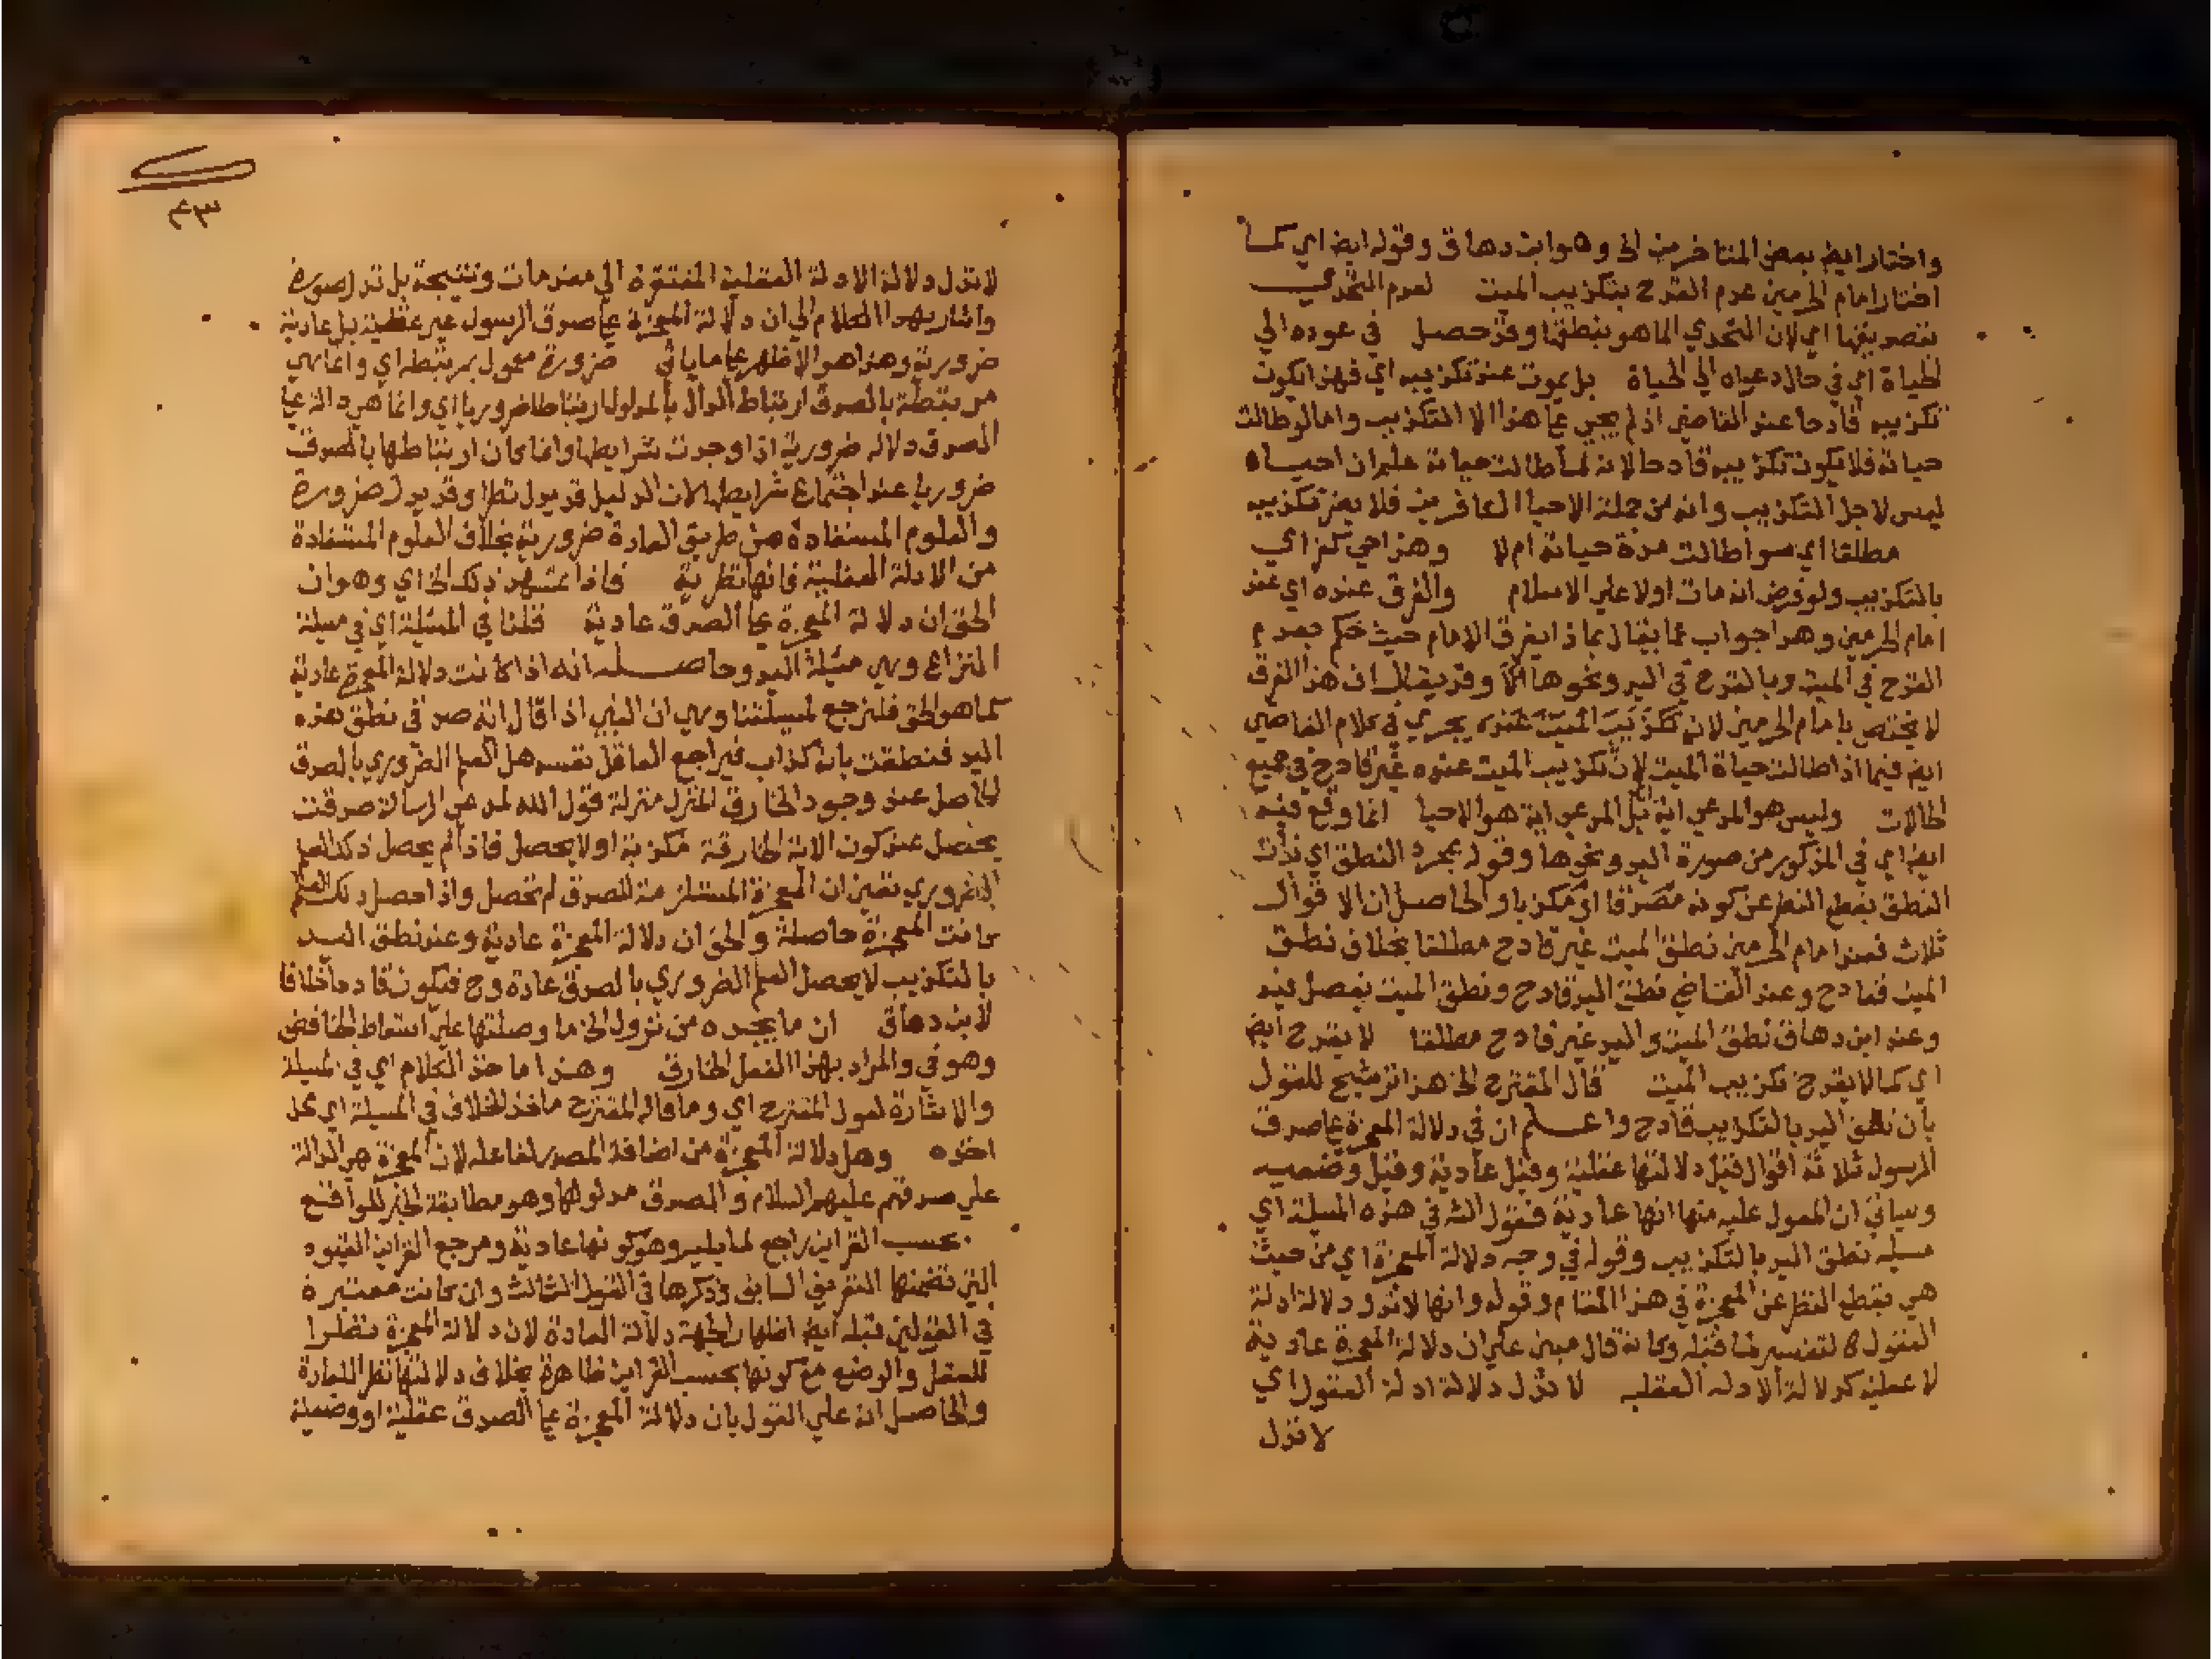 واختار ايض بعض المتاخرين الخ وهو ابن دهاق وقوله ايض اي كما
اختار امام الحرمين عدم القدح بتكذيب الميت لعدم التحدي
بتصديقها اي لان التحدي انما هو بنطقها وقد حصل في عوده الي
الحياة اي في حال دعواه الي الحياة بل يموت عند تكذيبه اي فهذا يكون
تكذيبه قادحا عند القاضي اذ لم يحيي علي هذا الا التكذيب واما لو طالت
حياته فلا يكون تكذيبه قادحا لانه لما طالت حياته علم ان احياه
ليس لاجل التكذيب وانه من جملة الاحيا الكافرين فلا يضر تكذيبه
مطلقا اي سوا طالت مدة حياته ام لا وهذا حي كفر اي
بالتكذيب ولو فرض انه مات اولا علي الاسلام والفرق عنده اي عند
امام الحرمين وهو جواب عما يقال بماذا يفرق الامام حيث حكم بعدم
القدح في الميت وبالقدح في اليد ونحوها وقد يقال ان هذا الفرق
لا يختص بامام الحرمين لان تكذيب الميت عنده يجري في كلام القاضي
ايض فيما اذا طالت حياة الميت لان تكذيب الميت عنده غير قادح في جميع
الحالات وليس هو المدعي اية بل المدعي اية هو الاحيا انما وقع فيه
ايض اي في المذكور من صورة اليد ونحوها وقوله بمجرد النطق اي بذات
النطق بقطع النظر عن كونه مصدقا او مكذبا والحاصل ان الاقوال
ثلاث فعند امام الحرمين نطق الميت غير قادح مطلقا بخلاف نطق
الميت فقادح وعند القاضي نطق اليد قادح ونطق الميت يفصل فيه
وعند ابن دهاق نطق الميت واليد غير قادح مطلقا لا يقدح ايض
اي كما لا يقدح تكذيب الميت قال المقترح الخ هذا ترشيح للقول
بان نطق اليد بالتكذيب قادح واعلم ان في دلالة المعجزة علي صدق
الرسول ثلاثة اقوال قيل دلالتها عقلية وقيل عادية وقيل وضعيه
وسياتي ان المعول عليه منها انها عادية فقول الشه في هذه المسيلة اي
مسيله نطق اليد بالتكذيب وقوله في وجه دلالة المعجزة اي من حيث
هي بقطع النظر عن المعجزة في هذا المقام وقوله وانها لا تدل ودلالة ادلة
العقول كالتفسير لما قبله وكانه قال مبين علي ان دلالة المعجزة عادية
لا عقلية كدلالة الادله العقليه لا تدل دلالة ادلة العقول اي
لا تدل
٤٣
لا تدل دلالة الادلة العقلية المفتقرة الي مقدمات ونتيجة بل تدل ضرورة
واشار بهذا الكلام الي ان دلالة المعجزة علي صدق الرسول غير عقلية بل عادية
ضرورية وهذا هو الاظهر علي ما ياتي ضرورة معمول بمرتبطه اي وانما هي
مرتبطة بالصدق ارتباط الدال بالمدلول ارتباطا ضروريا اي وانما هي دالة علي
الصدق دلاله ضرورية اذا وجدت شرايطها وانما كان ارتباطها بالصدق
ضروريا عند اجتماع شرايطها لان الدليل قد يدل نظرا وقد يدل ضرورة
والعلوم المستفادة من طريق العادة ضرورية بخلاف العلوم المستفادة
من الادلة العقلية فانها نظرية فاذا عشهد ذلك الخ اي وهو ان
الحق ان دلالة المعجزة علي الصدق عادية قلنا في المسيلة اي في مسيلة
النزاع وهي مسيلة اليد وحاصله انه اذا كانت دلالة المعجزة عادية
كما هو الحق فلنرجع لمسيلتنا وهي ان النبي اذا قال اية صدقي نطق هذه
اليد فنطقت بانه كذاب فيراجع العاقل نفسه هل العلم الضروري بالصدق
الحاصل عند وجود الخارق المنزل منزلة قول الله لمدعي الرسالة صدقت
يحصل عند كون الاية الخارقة مكذبة او لا يحصل فاذا لم يحصل ذلك العلم
الضروري تعين ان المعجزة المستلزمة للصدق لم تحصل واذا حصل ذلك العلم
كانت المعجزة حاصلة والحق ان دلالة المعجزة عادية وعند نطق اليد
بالتكذيب لا يحصل العلم الضروري بالصدق عادة وح فتكون قادحا خلافا
لابن دهاق ان ما يجده من نزول الخ ما وصلتها علي اسقاط الخافض
وهو في والمراد بهذا الفعل الخارق وهذا ماخذ الكلام اي في المسيلة
والاشارة لقول المقترح اي وما قاله المقترح ماخذ الخلاف في المسيلة اي محل
اخذه وهل دلالة المعجزة من اضافة المصدر لفاعله لان المعجزة هي الدالة
علي صدقهم عليهم السلام والصدق مدلولها وهو مطابقة الخبر للواقع
بحسب القراين راجع لما يليه وهو كونها عادية ومرجع القراين القيود
التي تضمنها التعريف السابق وذكرها في القول الثالث وان كانت معتبرة
في القولين قبله ايض اظهارا لجهة دلالة العادة لان دلالة المعجزة نظرا
للعقل والوضع مع كونها بحسب القراين ظاهرة بخلاف دلالتها نظرا للعادة
والحاصل انه علي القول بان دلالة المعجزة علي الصدق عقلية او وضعية